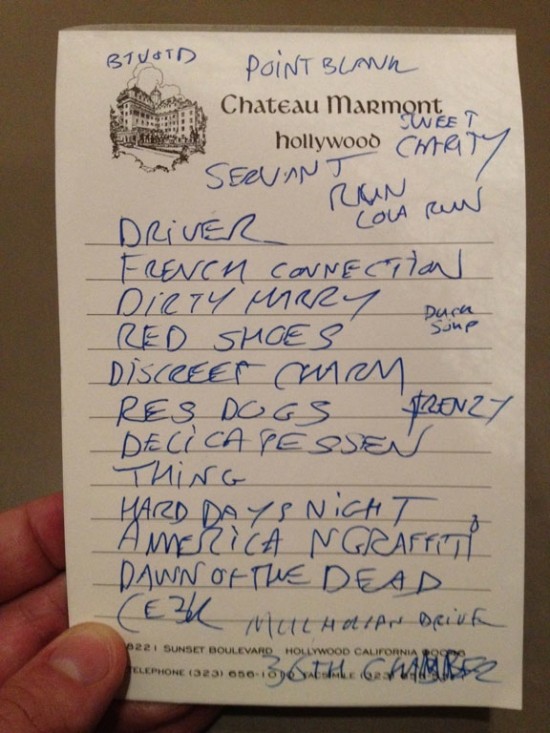 BTVOTD
POINT BLANK
Chateau Marmont
hollywood
SWEET
CHARITY
SERVANT
RUN
LOLA RUN
DRIVER
FRENCH CONNECTION
DIRTY HARRY
DUCK
SOUP
RED SHOES
DISCREET CHARM
RES DOGS
FRENZY
DELICATESSEN
THING
HARD DAYS NIGHT
AMERICAN GRAFFITI
DAWN OF THE DEAD
MULHOLLAN DRIVE
8221 SUNSET BOULEVARD HOLLYWOOD CALIFORNIA
36TH CHAMBER
TELEPHONE (323) 656-1010 FACSIMILE (323)